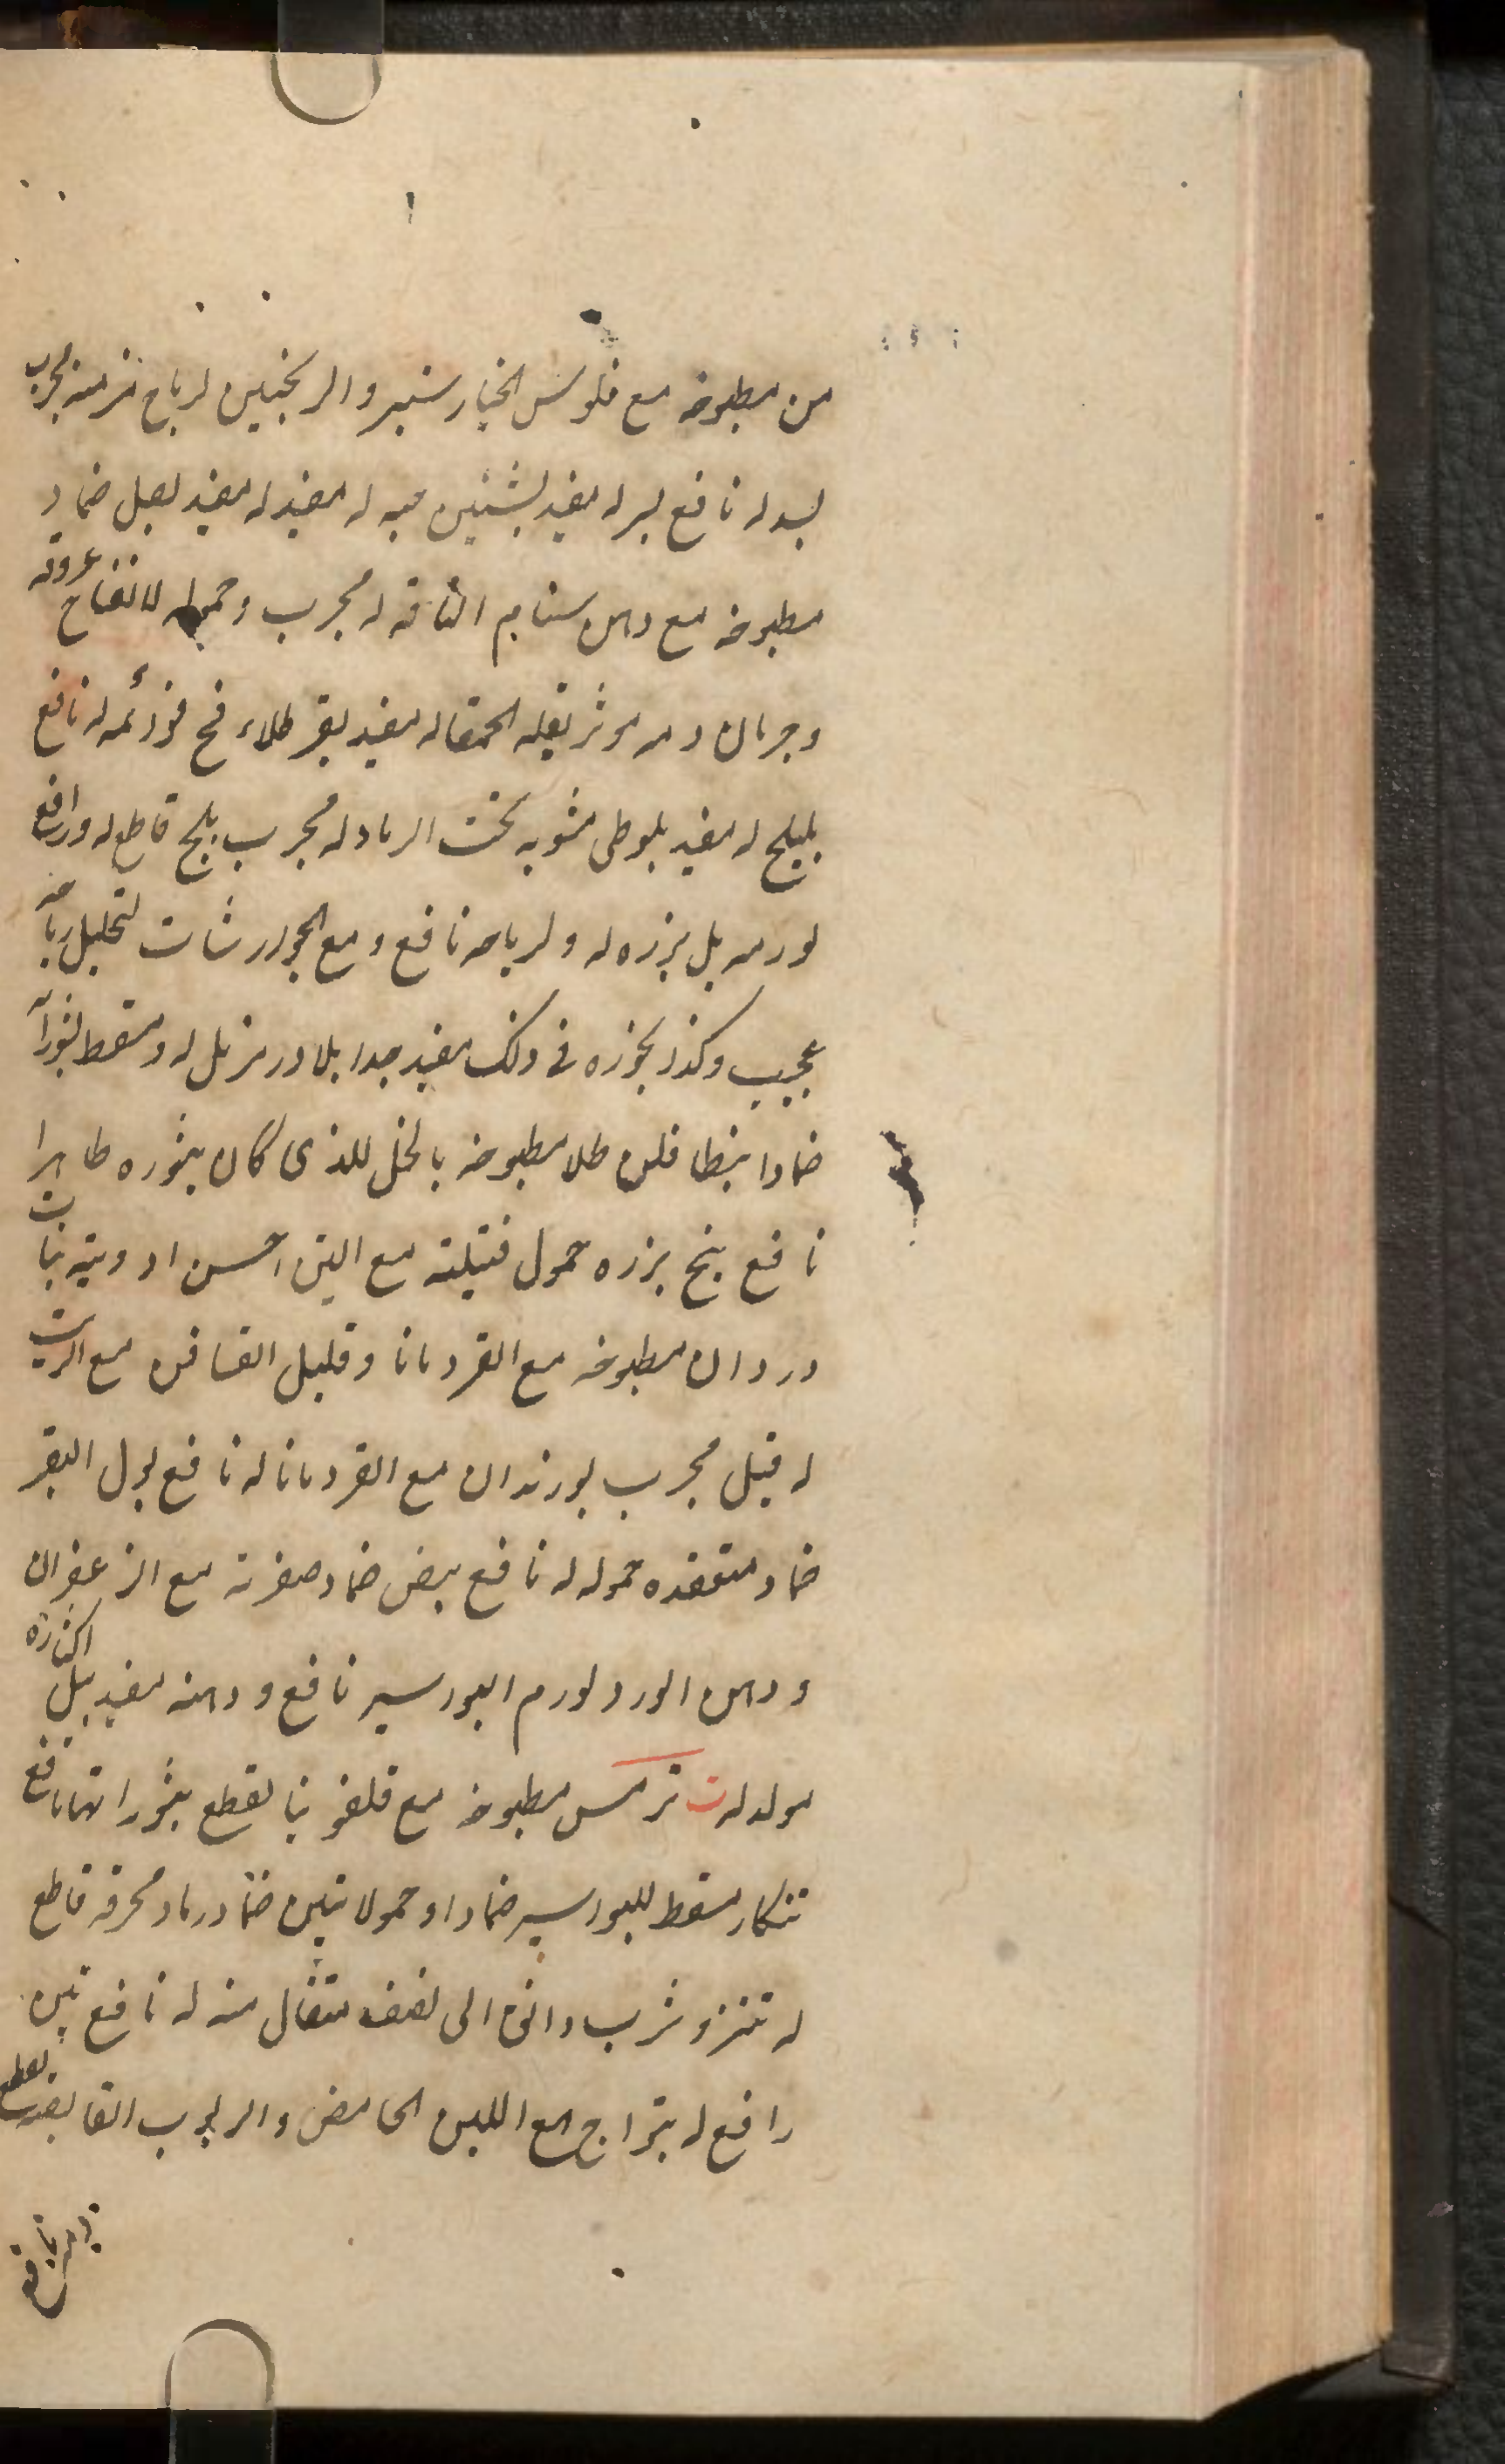 من مطبوخه مع فلوس الخيارشنبر والترنجبين لرياح مزمنه مجرب
بسد له نافع بسر له مفيد بشنين حبه له مفيد له مفيد بصل ضماد
مطبوخه مع دهن سنام الناقه له مجرب وحموله لانتفاخ عروقه
وجريان دمه موثر بقله الحمقا له مفيد بقر طلاء مخ قوائمه له نافع
بليلج له مفيد بلوطى مشويه تحت الرماد له مجرب بلح قاطع له ورافع
لورمه بل بزره له ولرياحه نافع ومع الجوارشات لتحليل رياحه
عجيب وكذا بخوره فى ذلك مفيد جدا بلادر مزيل له ومسقط بثوراته
ضمادا بنطافلن طلا مطبوخه بالخل للذى كان بثوره ظاهرا
نافع بنج بزره حمول فتيلته مع التين احسن ادويته بنات
وردان مطبوخه مع القردمانا وقليل القاقن مع الزيت
له قيل مجرب بورندان مع القردمانا له نافع بول البقر
ضماد منعقده حموله له نافع بيض ضماد صفرته مع الزعفران
ودهن الورد لورم البواسير نافع ودهنه مفيد بيل اكثاره
مولد له ت ترمس مطبوخه مع قلفونيا لقطع بثوراتها نافع
تنكار مسقط للبواسير ضمادا وحمولا تين ضماد رماد محرقه قاطع
له تتنزو شرب دانق الى نصف مثقال منه له نافع تين
رافع له بتراج مع اللبن الحامض والربوب القابضه لقطع
دمه نافع